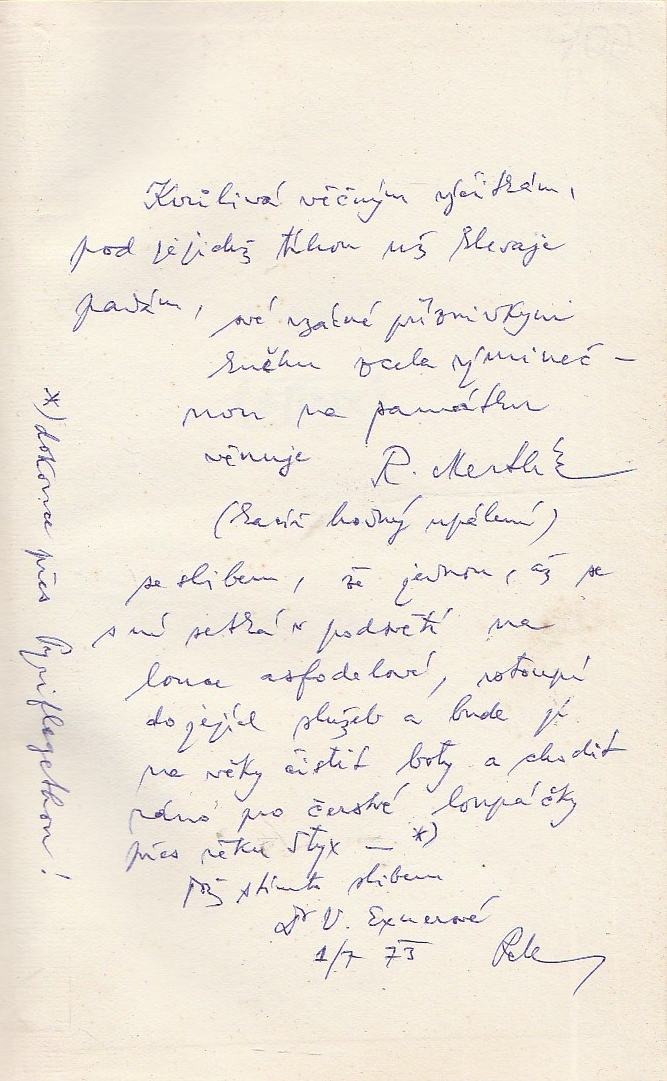 Kvůlivá věčným výčitkám,
pod jejichž tíhou už klesaje
padám, své vzácné příznivkyni
kněhu zcela výmineč-
nou na památku
věnuje R. Mertlík
(kacíř hodný upálení)
se slibem, že jednou, až se
s ní setká v podsvětí na
louce asfodelové, vstoupí
do jejích služeb a bude jí
na věky čistit boty a chodit
ráno pro čerstvé loupáčky
přes řeku Styx — *)
Též s tímto slibem
Dr V. Exnerové
1/7 73
*) dokonce přes Pyriflegethon!